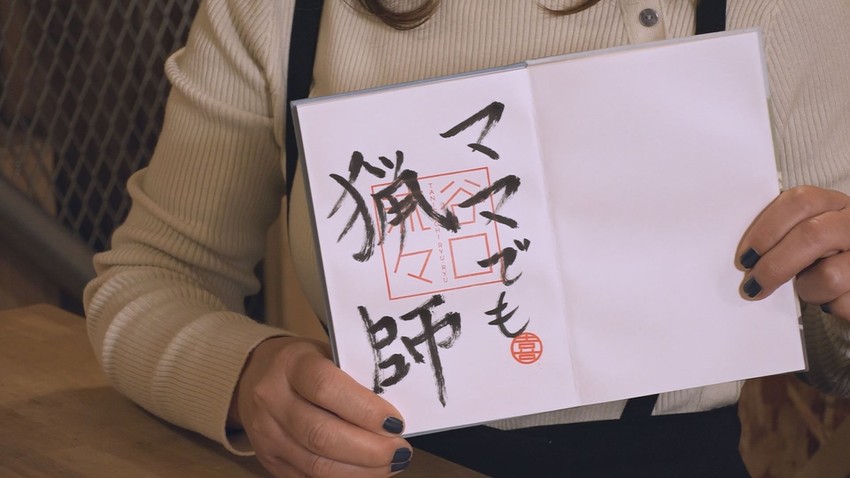 ママでも
猟師
谷口
流々
TANIGUCHI RYU RYU
喜